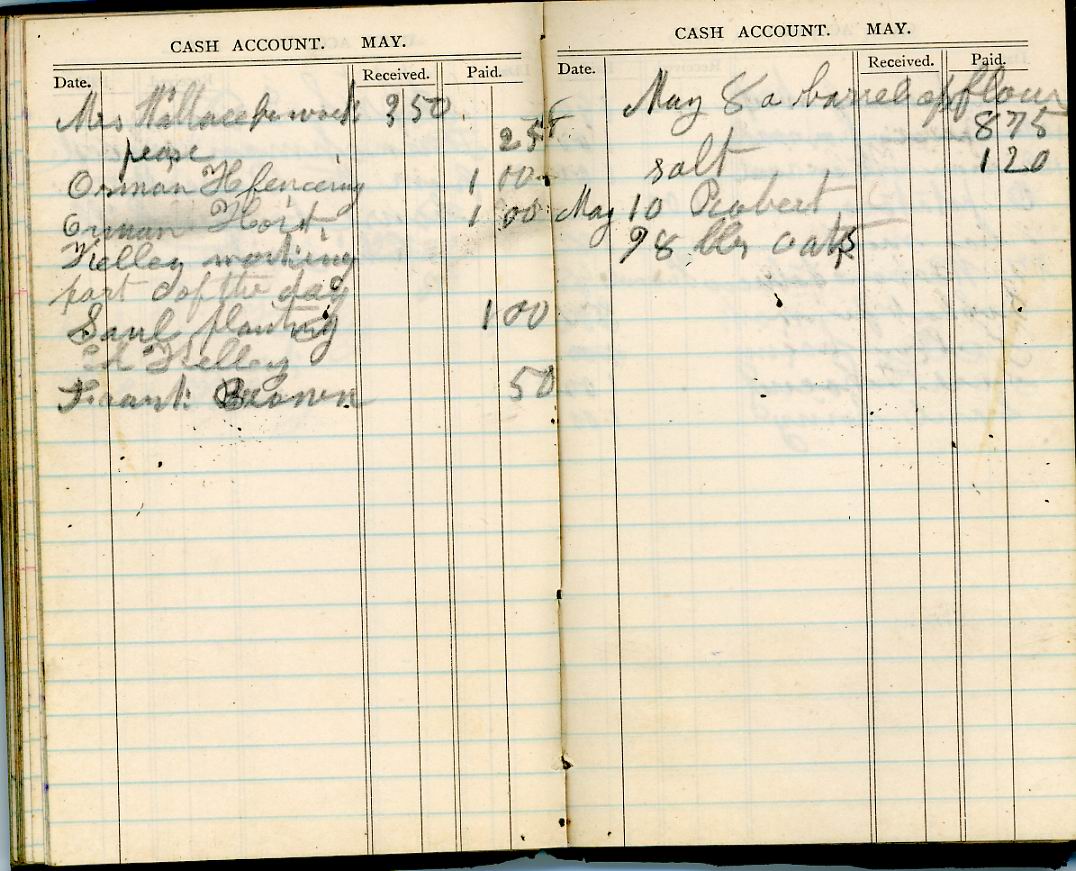 CASH ACCOUNT. MAY.
Date. Received. Paid.
Mrs Wallace 3 50
pease 25
Orman H fencing 1 00
Orman Hoit 1 00
Kelley working
part of the day
Saul planting 1 00
Kelley
Frank Brown 50
CASH ACCOUNT. MAY.
Date. Received. Paid.
May 8 a barrel of flour
8 75
salt 1 20
May 10 Robert
98 lbs oats